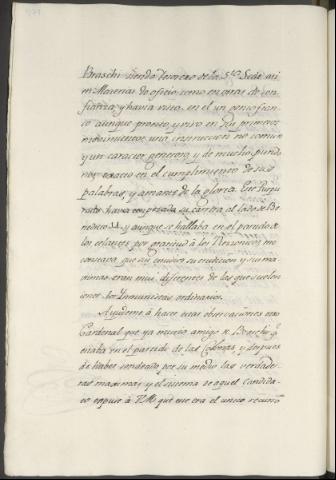 Braschi siendo Tesorero de la S.ta Sede asi
en Materias de oficio, como en otras de con
fianza, y havia visto en el un genio fran
co aunque pronto, y vivo en sus primeros
movimientos, una instruccion no comun
y un caracter generoso, y de mucho pundo
nor exacto en el cumplimiento de sus
palabras, y amante de la gloria. Este Purpu
rado havia empezado su carrera al lado de Be
nedicto y aunque se hallaba en el partido de
los celantes por gratitud à los Rezonicos me
constava que sus estudios su erudicion y sus ma
ximas eran mui diferentes de las que suelen
tener los Inquisitos ordinarios.
Ayudome à hacer estas observaciones otro
Cardenal que ya murio amigo de Braschi, y
estaba en el partido de las Coronas, y despues
de haber sondeado por su medio las verdade
ras maximas, y el sistema de aquel candida
to expuse à V.M. que este era el unico recurso